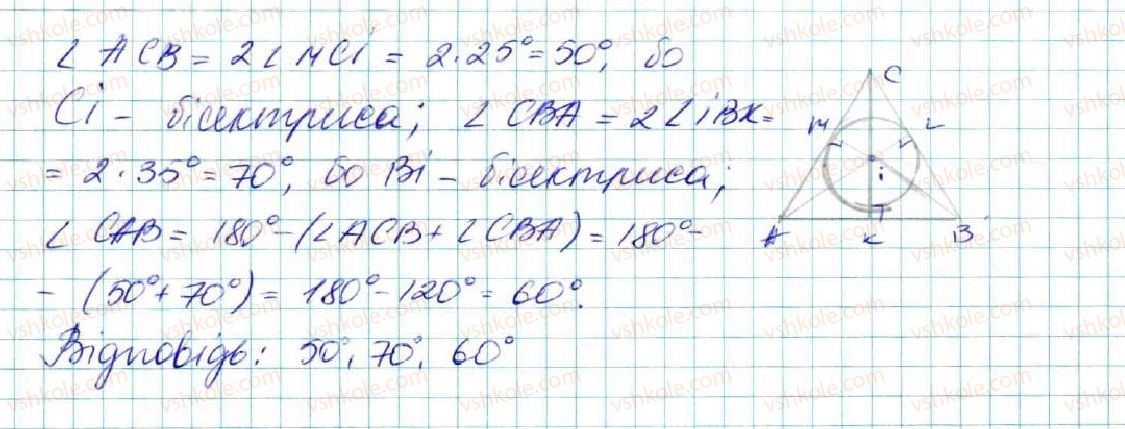 ∠ ACB = 2∠ MCi = 2·25° = 50°, бо
Ci – бісектриса; ∠ CBA = 2∠iBK =
= 2·35° = 70°, бо Bi – бісектриса;
∠ CAB = 180° – (∠ACB + ∠CBA) = 180° –
– (50° + 70°) = 180° – 120° = 60°.
Відповідь: 50°, 70°, 60°
C
M L
i
A K B
vshkole.com